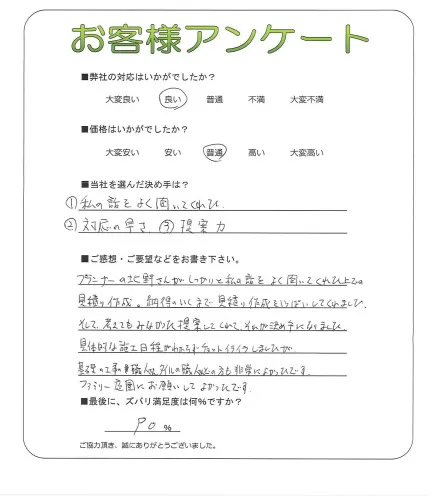 お客様アンケート
■弊社の対応はいかがでしたか?
大変良い 良い 普通 不満 大変不満
■価格はいかがでしたか?
大変安い 安い 普通 高い 大変高い
■当社を選んだ決め手は?
①私の話をよく聞いてくれた
②対応の早さ ③提案力
■ご感想・ご要望などをお書き下さい。
プランナーの北野さんがしっかりと私の話をよく聞いてくれた上での
見積り作成。納得のいくまで見積り作成をしてくれました。
そして、提案してくれて、それが決め手になりました。
具体的な施工日程がわからずチョットイライラしましたが、
基礎の工事職人、タイルの職人の方も非常によかったです。
ファミリー庭園にお願いしてよかったです。
■最後に、ズバリ満足度は何%ですか?
90 %
ご協力頂き、誠にありがとうございました。